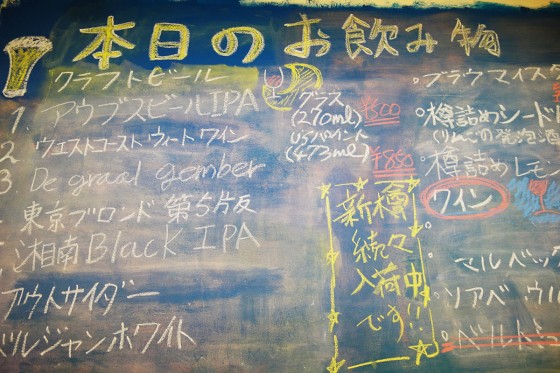 本日のお飲み物
クラフトビール
1. アウブスビールIPA
2 ウエストコースト ウィート ワイン
3 De graal gember
東京ブロンド 第5片反
湘南 Black IPA
アウトサイダー
ベルジャンホワイト
グラス
(270ml) ¥500
USパイント
(473ml) ¥850
新樽
続々
入荷中
です!!
。ブラウマイスタ
。樽詰めシードル
(りんごの発泡酒
。樽詰め レモン
ワイン
。マルベッ
。ソアベ